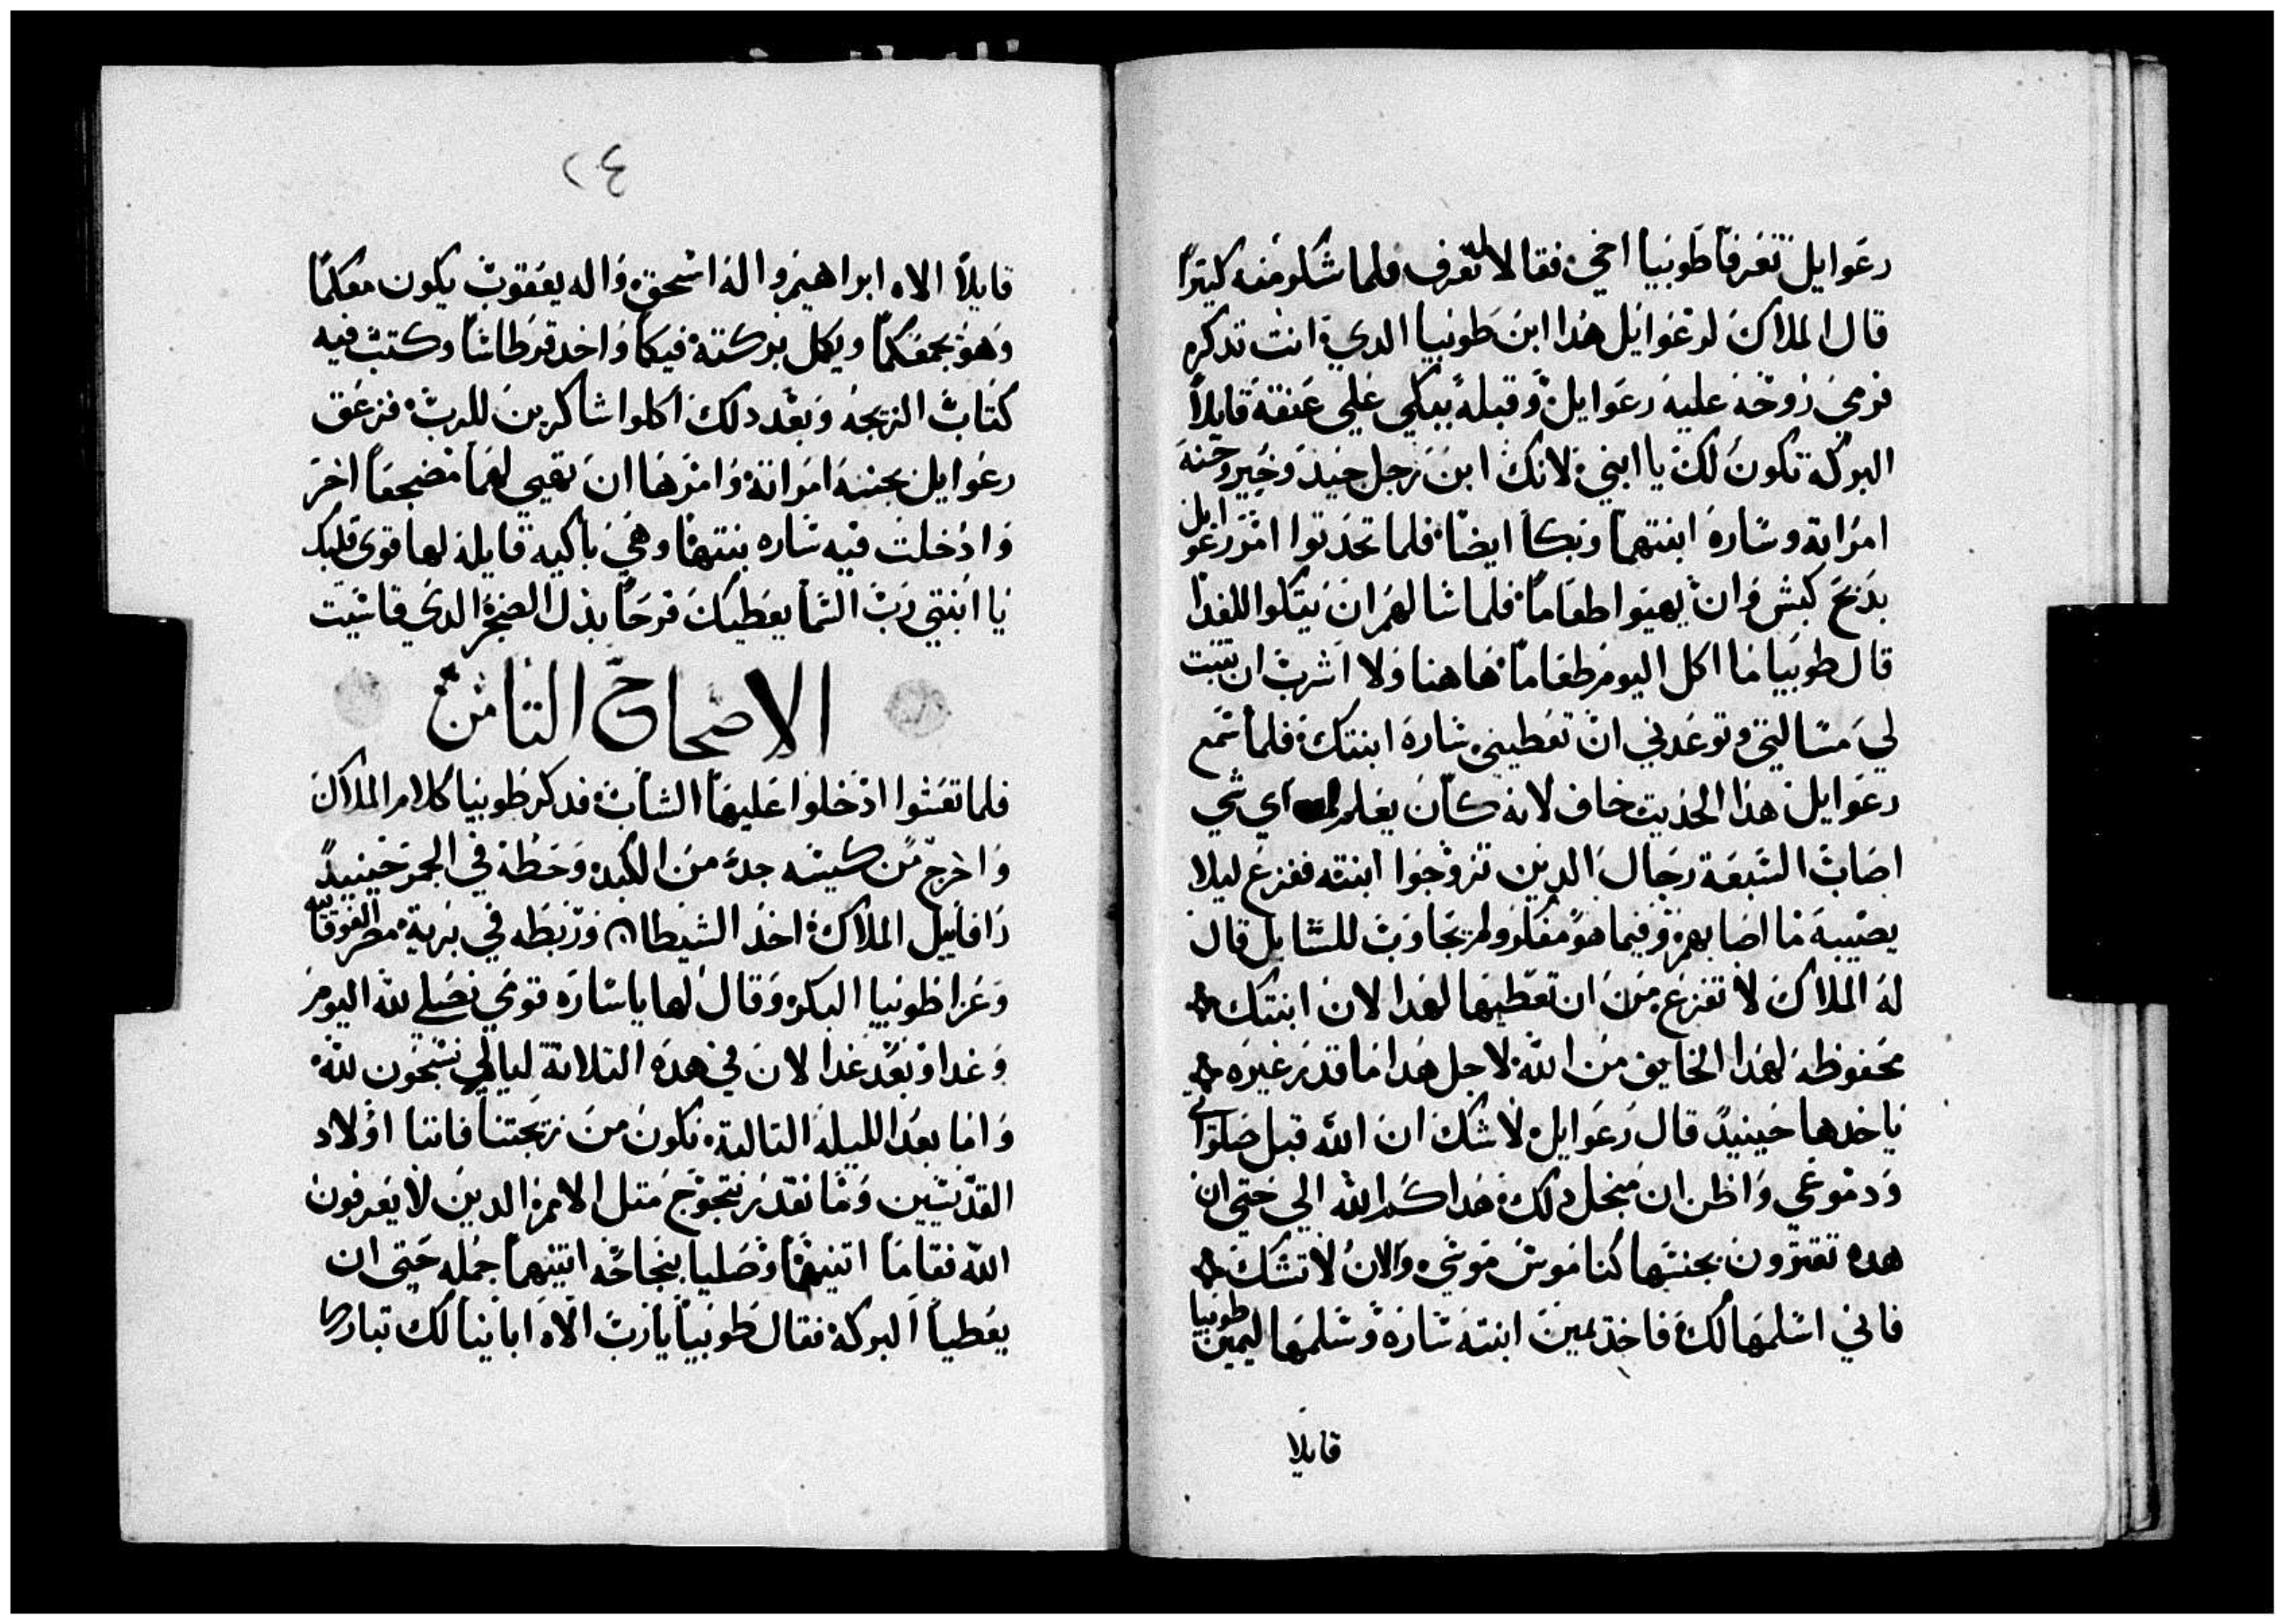 رعوايل تعرفا طوبيا اخي فقالا له نعرف فلما شكلو منه كتيرًا
قال الملاك لرعوايل هدا ابن طوبيا الدي انت تدكره
فرمي روحه عليه رعوايل وقبله يبكي علي عنقه قايلاً
البركه تكون لك يا ابني لانك ابن رجل جيد وخير وحنه
امراته وساره ابنتهما وبكا ايضا فلما تحدتوا امر رعوايل
بدبح كبش وان يهيوا طعاماً فلما شالهم ان يتكلوا للغدا
قال طوبيا ما اكل اليوم طعاماً هاهنا ولا اشرب ان تتبت
لي مسالتي وتوعدني ان تعطيني ساره ابنتك فلما سمع
رعوايل هدا الحديت خاف لانه كان يعلم اي شي
اصاب السبعة رجال الدين تزوجوا ابنته ففزع ليلا
يصيبه ما اصابهم وفيما هو مفكر ولم يجاوب للسايل قال
له الملاك لا تفزع من ان تعطيها لهدا لان ابنتك
محفوظه لهدا الخايف من الله لاجل هدا ما قدر غيره
ياخدها حينيدً قال رعوايل لا شك ان الله قبل صلواتي
ودموعي واظن ان من اجل دلك هداكم الله الي حتي ان
هده تقترون بجنسها كناموس موسي والان لا تشك
فاني اسلمها لك فاخد يمين ابنته ساره وسلمها ليمين طوبيا
قايلا
٢٤
قايلاً الاه ابراهيم واله اسحق واله يعقوب يكون معكما
وهو يجمعكما ويكمل بركته فيكما واخد قرطاسا وكتب فيه
كتاب الزيجه وبعد دلك اكلوا شاكرين للرب فزعق
رعوايل بحننه امراته وامرها ان تهيي لهما مضجعاً اخر
وادخلت فيه ساره بنتهما وهي باكيه قايلة لها قوي قلبك
يا ابنتي رب السما يعطيك فرحاً بدل الضجر الدي قاسيت
الاصحاح التامن
فلما تعشوا ادخلوا عليها الشاب فدكر طوبيا كلام الملاك
واخرج من كيسه جده من الكبد وحطه في الجمر حينيدً
رافاييل الملاك اخد الشيطان وربطه في برية مصر الفوقانيه
وعزا طوبيا البكر وقال لها يا ساره قومي نصلي لله اليوم
وغدا وبعد غدا لان في هده التلاتة ليالي نسبحون لله
واما بعد الليله التالته نكون من زيجتنا فاننا اولاد
القديسين وما نقدر نتجوج متل الامم الدين لا يعرفون
الله فقاما اتنيهما وصليا بنجاحه اتنيهما جمله حتي ان
يعطيا البركه فقال طوبيا يا رب الاه اباينا لك تبارك